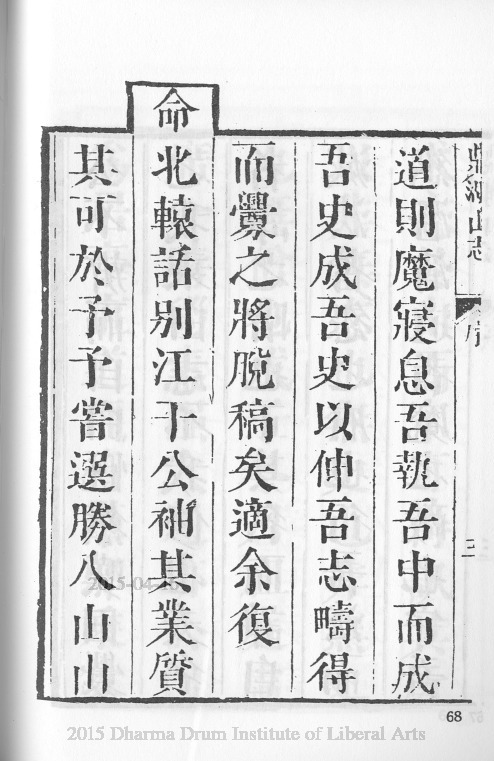 鼎湖山志
序
三
道則魔寢息吾執吾中而成
吾史成吾史以仲吾志疇得
而釁之將脫稿矣適余復
命
北轅話別江干公袖其業質
其可於予予嘗選勝入山山
68
2015-04-15
2015 Dharma Drum Institute of Liberal Arts